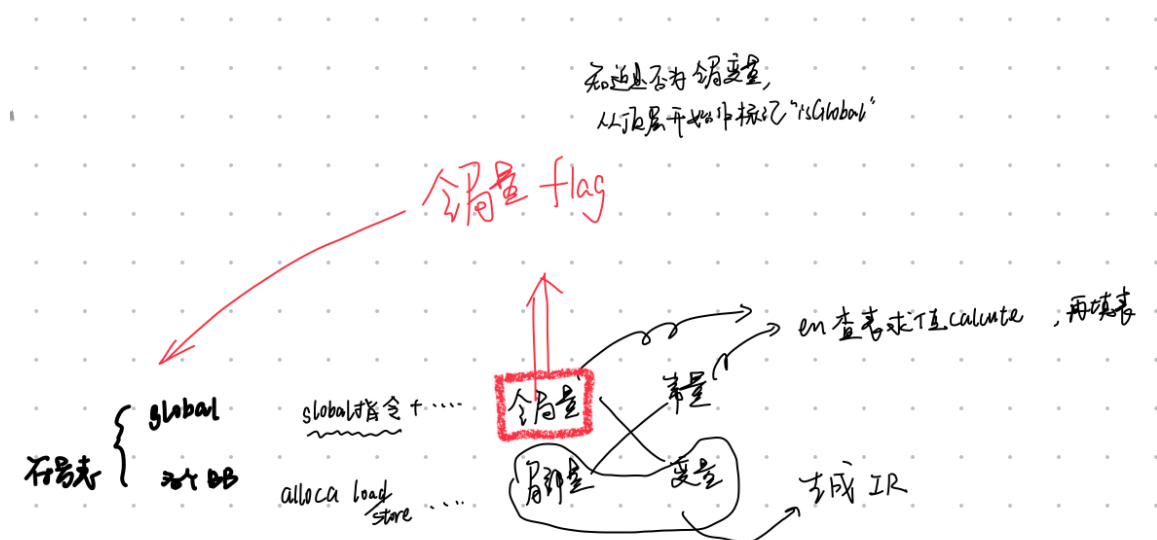 知道是否为全局变量,
从顶层开始作标记"isGlobal"
全局量 flag
en查表求值calcute ,再填表
全局量 常量
global global指令+····
符号表
每个BB alloca load/store ····
局部量 变量
生成 IR